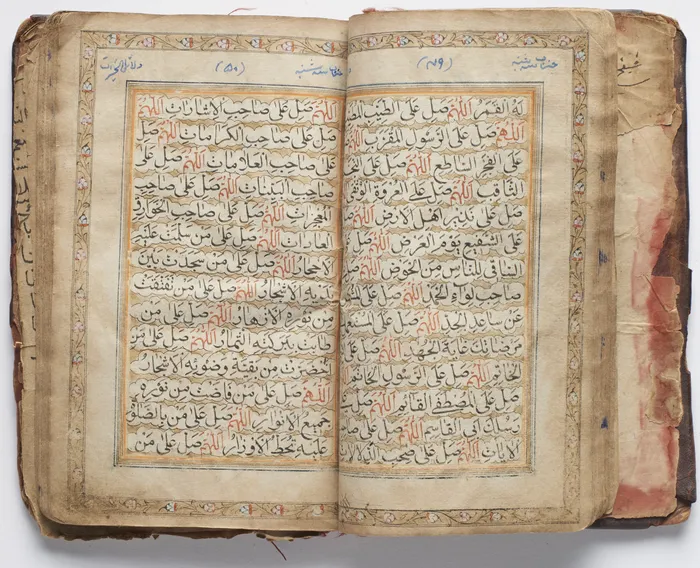 حزب سه شنبه
(٤٩)
له القمر اللهم صل على الطيب
اللهم صل على الرسول المقرب اللهم
على الفجر الساطع اللهم صل على
الثاقب اللهم صل على العروة
صل على نذير اهل الارض اللهم
على الشفيع يوم العرض اللهم صل
الساقي للناس من الحوض اللهم
صاحب لواء الحمد اللهم صل على
عن ساعد الجد اللهم صل على
مرضاتك غاية الجهد اللهم صل
الخاتم اللهم صل على الرسول الخاتم
صل على المصطفى القائم اللهم صل
رسولك ابي القاسم اللهم صل
الايات اللهم صل على صاحب الدلالات
حزب سه شنبه
(٥٠)
دلائل الخيرات
اللهم صل على صاحب الاشارات اللهم
صل على صاحب الكرامات اللهم صل
على صاحب العلامات اللهم صل على
صاحب البينات اللهم صل على صاحب
المعجزات اللهم صل على صاحب الخوارق
العادات اللهم صل على من سلمت عليه
الاحجار اللهم صل على من سجدت بين
يديه الاشجار اللهم صل على من تفتقت
من نوره الازهار اللهم صل على من
طابت ببركته الثمار اللهم صل على من
اخضرت من بقية وضوئه الاشجار
اللهم صل على من فاضت من نوره
جميع الانوار اللهم صل على من بالصلوة
عليه تحط الاوزار اللهم صل على من